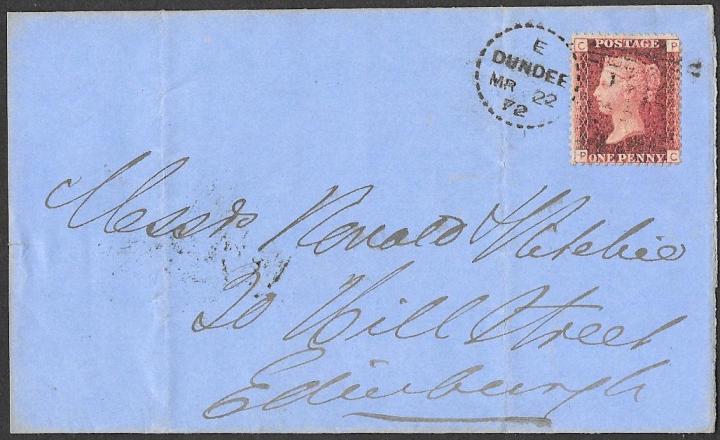 E
DUNDEE
MR 22
72
C POSTAGE P
P ONE PENNY C
Messrs Ronald & Ritchie
20 Hill Street
Edinburgh